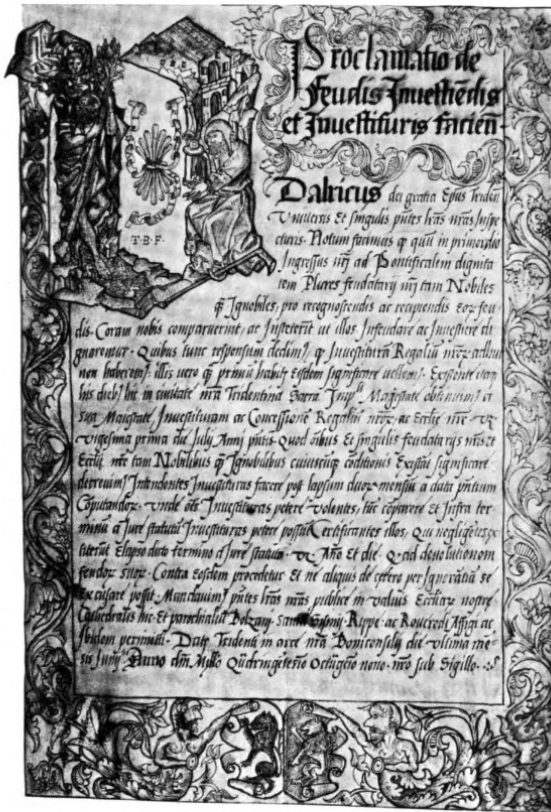 Proclamatio de
Feudis Inuestiēdis
et Inuestituris facien·
T·B·F·
Dalricus dei gratia Ep̄us Triden̄
Vniuersis Et singulis p̄ntes l̄ras n̄ras Inspe
cturis· Notum facimus q̄ quū in primordio
Ingressus n̄rj ad Pontificalem dignita
tem Plures feudatarij n̄rj tam Nobiles
q̄ Ignobiles, pro recognoscendis ac recipiendis eoꝝ feu
dis· Coram nobis comparuerint, ac Institerit ut illos Infeudare ac Inuestire di
gnaremur· Quibus tunc responsum dedim⁹, q̄ Inuestiturā Regaliū n̄roꝝ adhuc
non haberem⁹· illis vero q̄ primū habitis Eisdem significare vellem⁹· Existente
his dieb⁹ hic in ciuitate n̄ra Tridentina Sacra Imp̄li Magestate obtinuim⁹ a
sua Maiestate Inuestituram ac Concessionē Regaliū n̄roꝝ ac Eccl̄ie n̄re
vigesima prima die Iuly Annj p̄ntis· Quod oībus Et singulis feudatarys n̄ris et
Eccl̄ie n̄re tam Nobilibus q̄ Ignobilibus cuiuscūq̄ cōditionis Existāt significare
decreuim⁹ Intendentes Inuestituras facere post lapsum duoꝝ mensiū a data p̄ntium
Cōputandoꝝ· vnde oēs Inuestituras petere volentes, tūc cōparere Et Infra ter
minū a Iure statutū Inuestituras petere possint Certificantes illos, Qui negligētes
Elapso dicto termino a Iure statuto· Año et die· Q ad deuolutionem
feudoꝝ suoꝝ· Contra Eosdem procedetur Et ne aliquis de cetero per Ignorātiā se
Excusare possit Mandauim⁹ p̄ntes l̄ras n̄ras publice in valuis Eccl̄iaꝝ nostre
Cathedralis hic· Et parochialiū Bolzani· Rippe· ac Rouredi Affigi ac
Ibidem permitti· Dat̄ Tridenti in arce n̄ra Boniconsilij die vltima me
sis Iunij Anno dn̄i Myllo Quadringētesio Octugesio nono· n̄ro sub Sigillo·